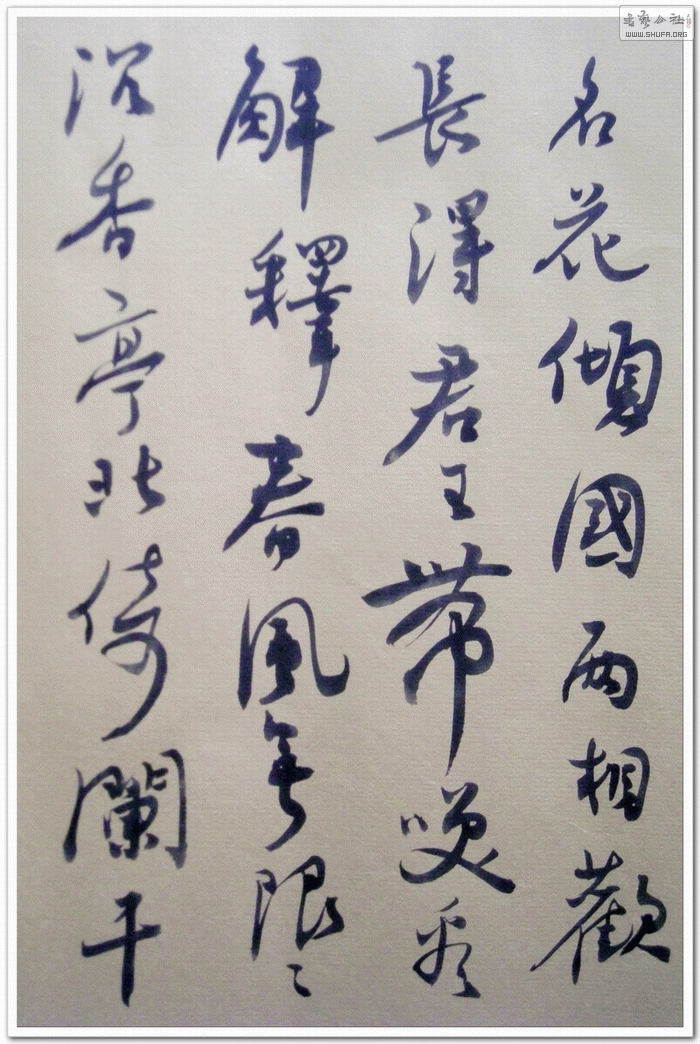 書藝公社
WWW.SHUFA.ORG
名花傾國两相觀
長得君王帶咲看
解釋春風無限〻
沉香亭北倚闌干